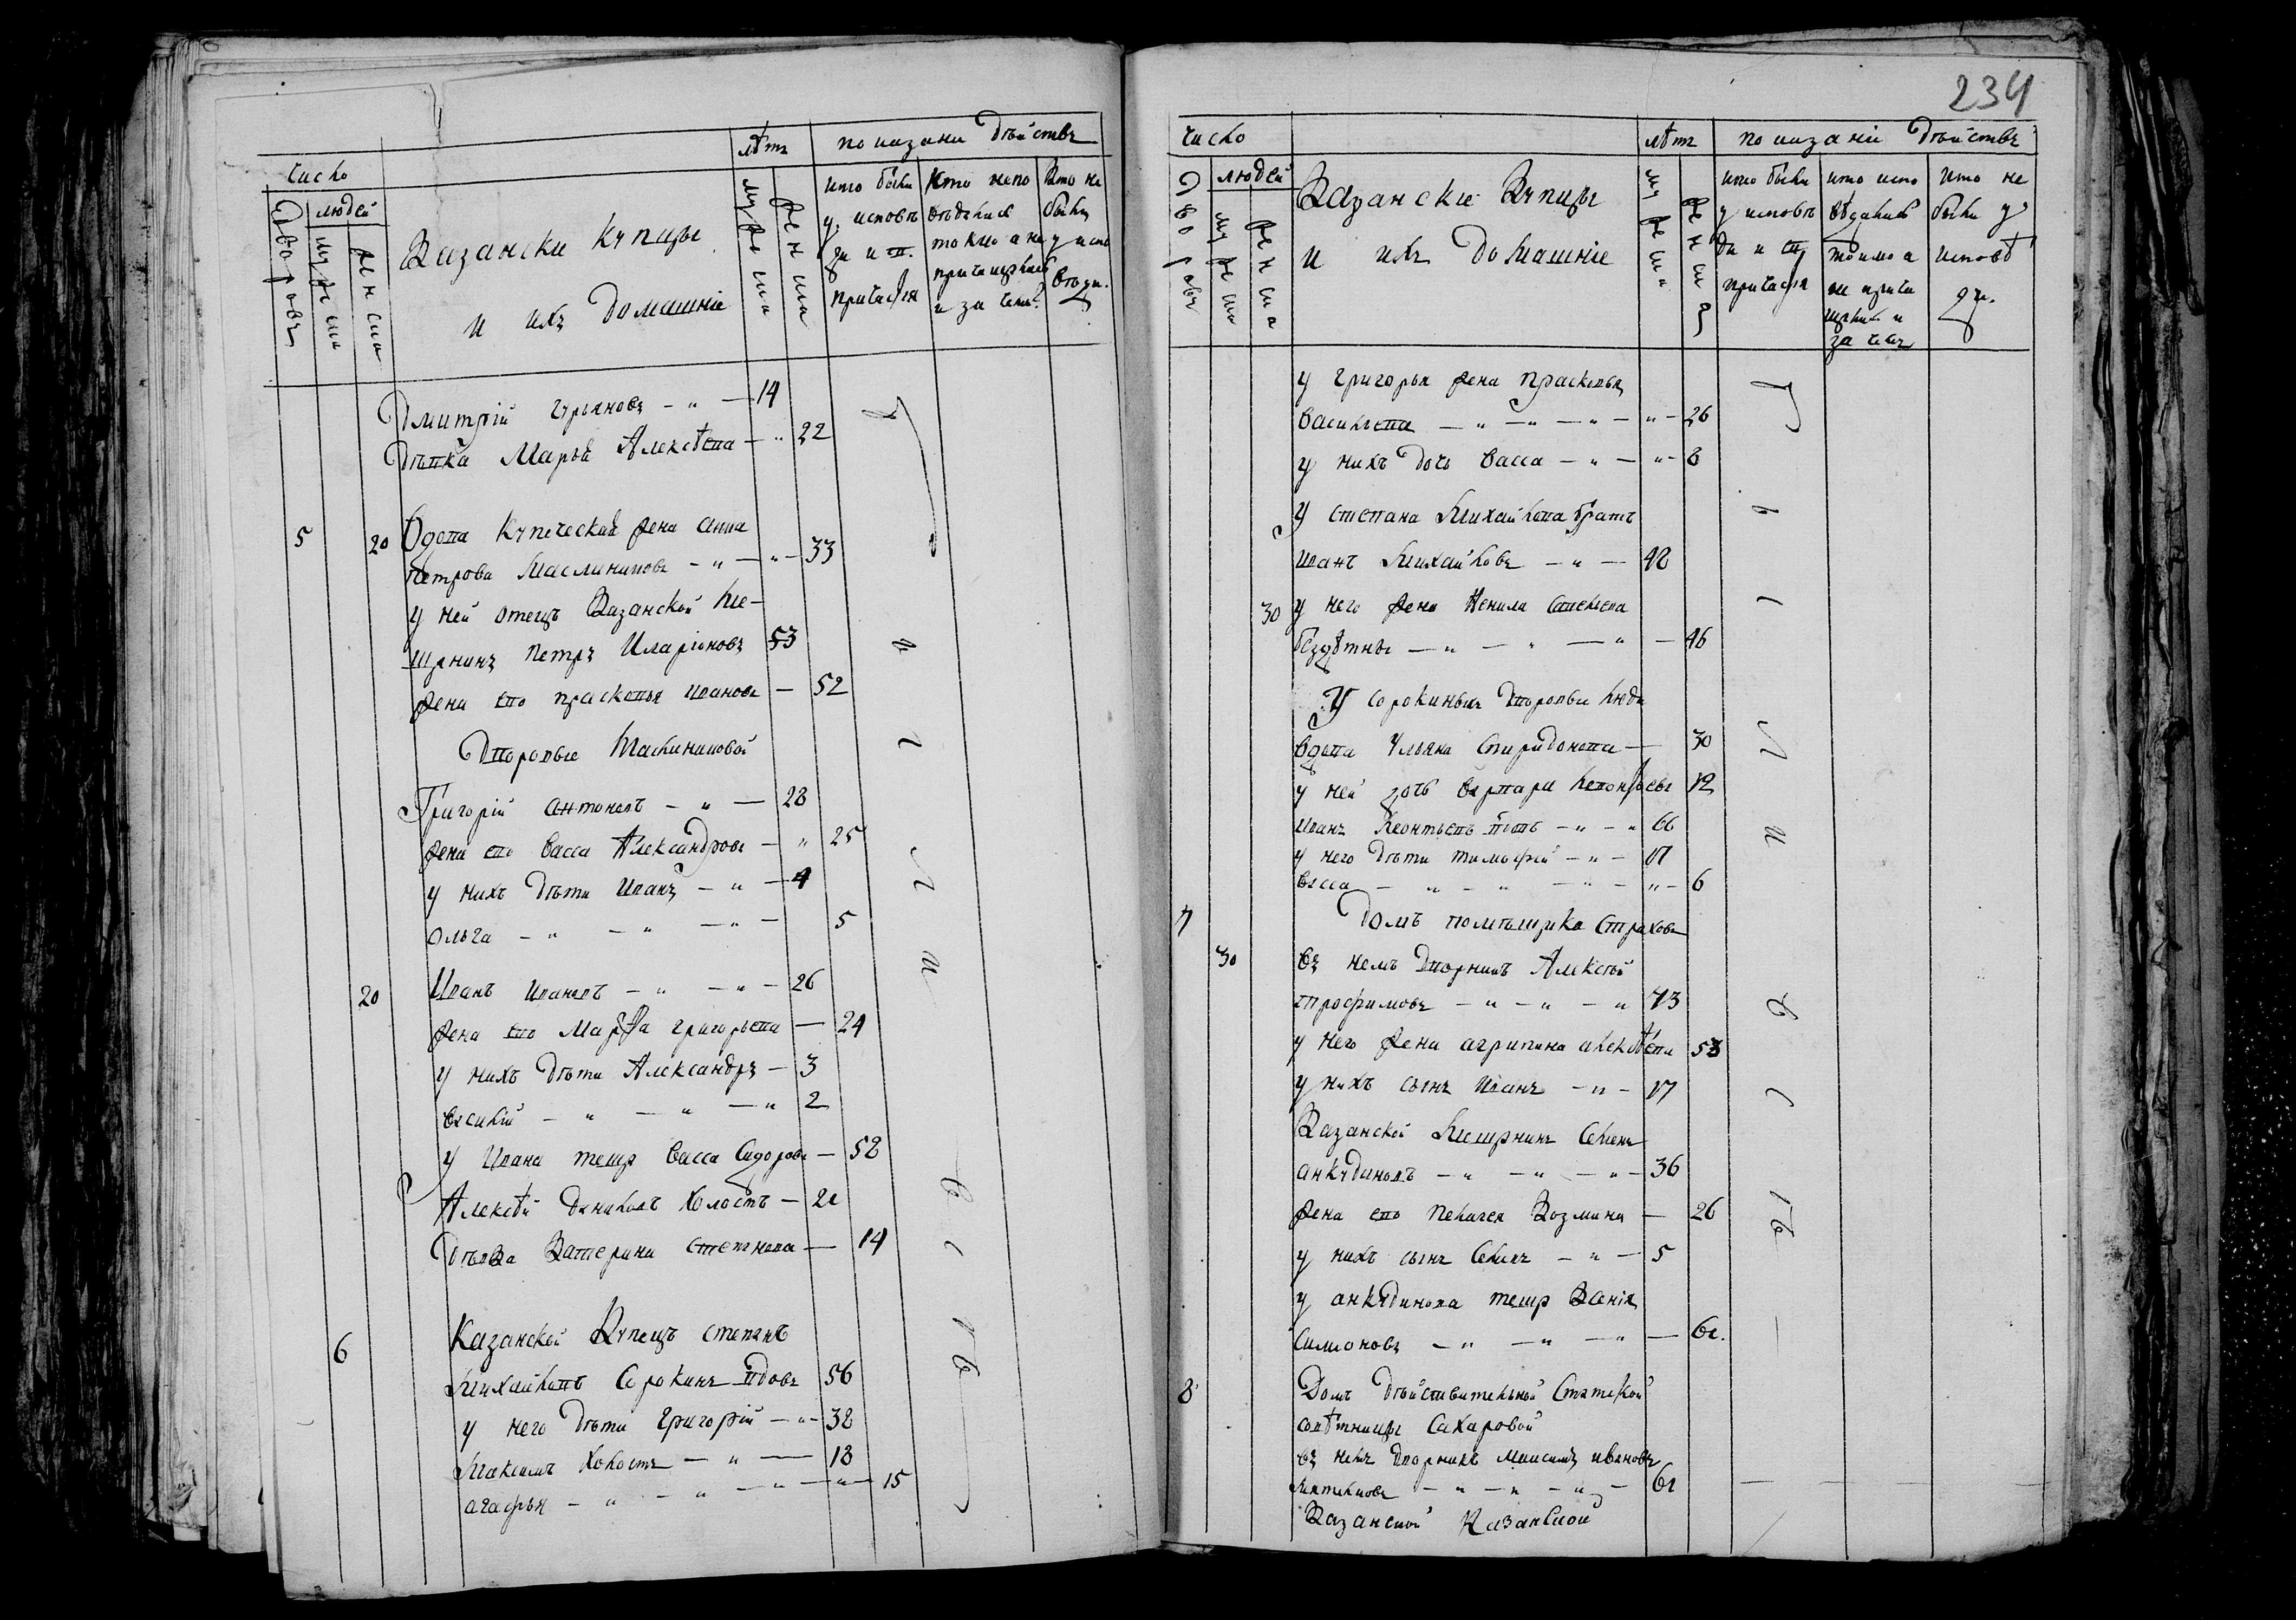 число
людей
дворовъ
мужеска
женска
Казански купцы
и ихъ домашніе
лѣтъ
мужеска
женска
показани дѣйствъ
кто были
у исповѣ
ди и с.
причастія
токмо а не
причащались
и за чемъ
кто не
были
у испо
вѣди.
Дмитрій Гурьяновъ - " - 14
Дѣвка Марья Алексѣева - " 22
5 20 Вдова купеческая жена Анна
Петрова Маслиникова - " - " - 33
у ней отецъ Казанской Ме-
щанинъ Петръ Иларіоновъ 53
жена его Прасковья Иванова - 52
Дворовые Маслиниковой
Григорій Антоновъ - " - 28
жена его Васса Александрова - " 25
у нихъ дѣти Иванъ - " - 4
Ольга - " - " - " - 5
20 Иванъ Ивановъ - " - " - 26
жена его Марфа Григорьева - 24
у нихъ дѣти Александръ - 3
Василій - " - " - " 2
у Ивана теща Васса Сидорова - 52
Алексѣй Даниловъ холостъ - 21
Дѣвка Катерина Степанова - 14
6 Казанской Купецъ Степанъ
Михайловъ Сорокинъ вдовъ 56
у него дѣти Григорій - " - 32
Максимъ холостъ - " - 18
Агафья - " - " - " - " - 15
234
число
людей
дворовъ
мужеска
женска
Казанскіе Купцы
и ихъ домашніе
лѣтъ
мужеска
женска
показаніи дѣйствъ
кто были
у исповѣ
ди и с.
причастія
кто испо
вѣдались
токмо а
не прича
щались и
за чемъ
кто не
были у
исповѣ
ди.
у Григорья жена Прасковья
Васильева - " - " - " - " - 26
у нихъ дочь Васса - " - " - 8
у Степана Михайлова братъ
Иванъ Михайловъ - " - 42
30 у него жена Ненила Савельева
бездѣтны - " - " - " - 46
У Сорокиныхъ дворовые люди
Вдова Ульяна Спиридонова - 30
у ней дочь Варвара Леонтьева 12
Иванъ Леонтьевъ вдовъ - " - " 66
у него дѣти Тимофей - " - 17
Васса - " - " - " - " - 6
7 Домъ помѣщика Страхова
30 въ немъ дворникъ Алексѣй
Трофимовъ - " - " - " 73
у него жена Агрипина Алексѣева 53
у нихъ сынъ Иванъ - " - 17
Казанской Мещанинъ Семенъ
Анкудиновъ - " - " - " - 36
жена его Пелагея Козмина - 26
у нихъ сынъ Семенъ - " - 5
у Анкудинова теща Ксенія
Симионова - " - " - " - 61.
8 Домъ Дѣйствительной Статской
совѣтницы Сахаровой
въ немъ дворникъ Максимъ Ивановъ
- " - " - " - 61
Казанской Казанской